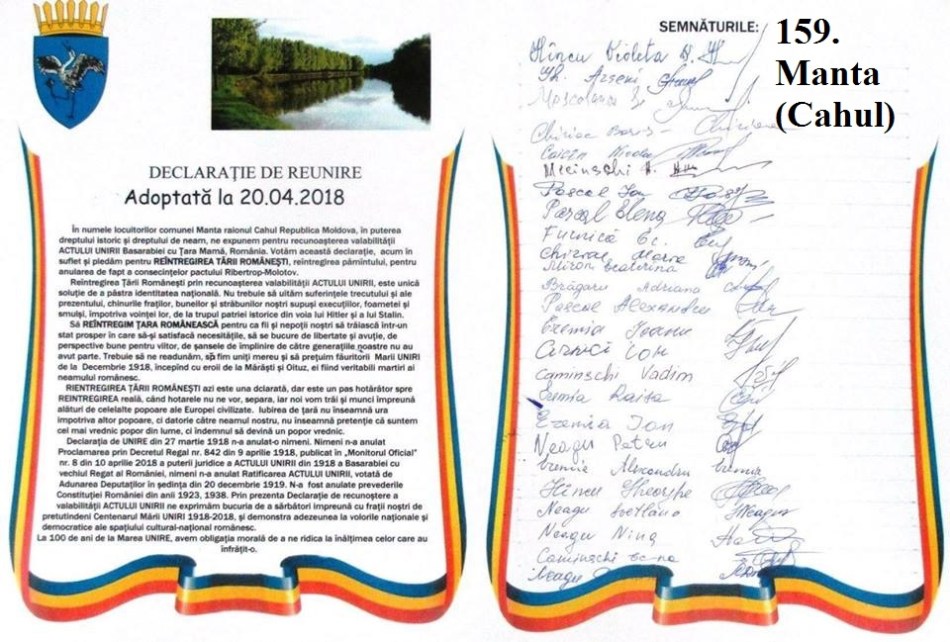 DECLARAȚIE DE REUNIRE
Adoptată la 20.04.2018
În numele locuitorilor comunei Manta raionul Cahul Republica Moldova, în puterea
dreptului istoric și dreptului de neam, ne expunem pentru recunoașterea valabilității
ACTULUI UNIRII Basarabiei cu Țara Mamă, România. Votăm această declarație, acum în
suflet și pledăm pentru REÎNTREGIREA TĂRII ROMÂNEȘTI, reîntregirea pământului, pentru
anularea de fapt a consecințelor pactului Ribertrop-Molotov.
Reîntregirea Țării Românești prin recunoașterea valabilității ACTULUI UNIRII, este unică
soluție de a păstra identitatea națională. Nu trebuie să uităm suferințele trecutului și ale
prezentului, chinurile fraților, buneilor și străbunilor noștri supuși execuțiilor, foametei și
smulși, împotriva voinței lor, de la trupul patriei istorice din voia lui Hitler și a lui Stalin.
Să REÎNTREGIM ȚARA ROMÂNEASCĂ pentru ca fii și nepoții noștri să trăiască într-un
stat prosper în care să-și satisfacă necesitățile, să se bucure de libertate și avuție, de
perspective bune pentru viitor, de șansele de împlinire de către generațiile noastre nu au
avut parte. Trebuie să ne readunăm, să fim uniți mereu și să prețuim făuritorii Marii UNIRI
de la Decembrie 1918, începînd cu eroii de la Mărăști și Oituz, ei fiind veritabili martiri ai
neamului românesc.
RIENTREGIREA ȚĂRII ROMÂNEȘTI azi este una dclarată, dar este un pas hotărâtor spre
REINTREGIREA reală, când hotarele nu ne vor, separa, iar noi vom trăi și munci împreună
alături de celelalte popoare ale Europei civilizate. Iubirea de țară nu înseamnă ura
împotriva altor popoare, ci datorie către neamul nostru, nu înseamnă pretenția că suntem
cel mai vrednic popor din lume, ci îndemnul să devină un popor vrednic.
Declarația de UNIRE din 27 martie 1918 n-a anulat-o nimeni. Nimeni n-a anulat
Proclamarea prin Decretul Regal nr. 842 din 9 aprilie 1918, publicat în „Monitorul Oficial"
nr. 8 din 10 aprilie 2018 a puterii juridice a ACTULUI UNIRII din 1918 a Basarabiei cu
vechiul Regat al României, nimeni n-a anulat Ratificarea ACTULUI UNIRII, votată de
Adunarea Deputaților în ședința din 20 decembrie 1919. N-a fost anulate prevederile
Constituției României din anii 1923, 1938. Prin prezenta Declarație de recunoștere a
valabilității ACTULUI UNIRII ne exprimăm bucuria de a sărbători impreună cu frații noștri de
pretutindeni Centenarul Mării UNIRI 1918-2018, și demonstra adezeunea la volorile naționale și
democratice ale spațiului cultural-național românesc.
La 100 de ani de la Marea UNIRE, avem obligația morală de a ne ridica la înălțimea celor care au
înfrățit-o.
SEMNĂTURILE:
159.
Manta
(Cahul)
Hîncu Violeta
Gh. Arseni
Chiriac
Nicolae
Pascal Ion
Pascal Elena
Furnică Ec.
Miron Ecaterina
Brăgaru Adriana
Pascal Alexandru
Eremia
Cernici Ion
Caminschi Vadim
Raisa
Eremia Ion
Neagu Petru
Eremia Alexandru
Hîncu Gheorghe
Neagu Svetlana
Neagu Nina
Caminschi Ec-na
Neagu